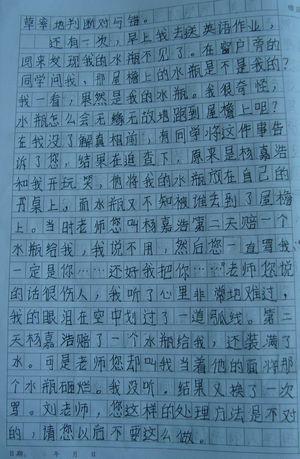 草率地判断对与错。
还有一次，早上我去送英语作业，
回来发现我的水瓶不见了。在窗户旁的
同学问我，那屋檐上的水瓶是不是我的？
我一看，果然是我的水瓶。我很奇怪，
水瓶怎么会无缘无故地跑到屋檐上呢？
在我没了解真相前，有同学将这件事告
诉了您，结果在追查下，原来是杨嘉浩
和我开玩笑，他将我的水瓶放在自己的
书桌上，而水瓶又不知被谁丢到了屋檐
上。当时老师您叫杨嘉浩第二天赔一个
水瓶给我，我说不用，然后您一直骂我：
一定是你……还好我把你……”老师您说
的话很伤人，我听了心里非常地难过，
我的眼泪在空中划过了一道弧线。第二
天杨嘉浩赔了一个水瓶给我，还装满了
水。可是老师您却叫我当着他的面将那
个水瓶砸烂。我没听，结果又换了一次
骂。刘老师，您这样的处理方法是不对
的，请您以后不要这么做。
日期： 年 月 日